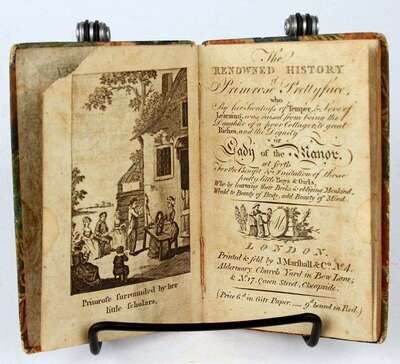 Primrose surrounded by her
little scholars.
The
RENOWNED HISTORY
of
Primrose Prettyface,
who
By her Sweetness of Temper, & Love of
Learning, was raised from being the
Daughter of a poor Cottager, to great
Riches, and the Dignity
of
Lady of the Manor.
set forth
For the Benefit & Imitation of those
pretty little Boys & Girls,
Who by learning their Books & obliging Mankind,
Would to Beauty of Body, add Beauty of Mind.
LONDON.
Printed & sold by J. Marshall & Co. No. 4.
Aldermary Church Yard in Bow Lane,
& No. 17, Queen Street, Cheapside.
(Price 6d. in Gilt Paper.— 9d. bound in Red.)